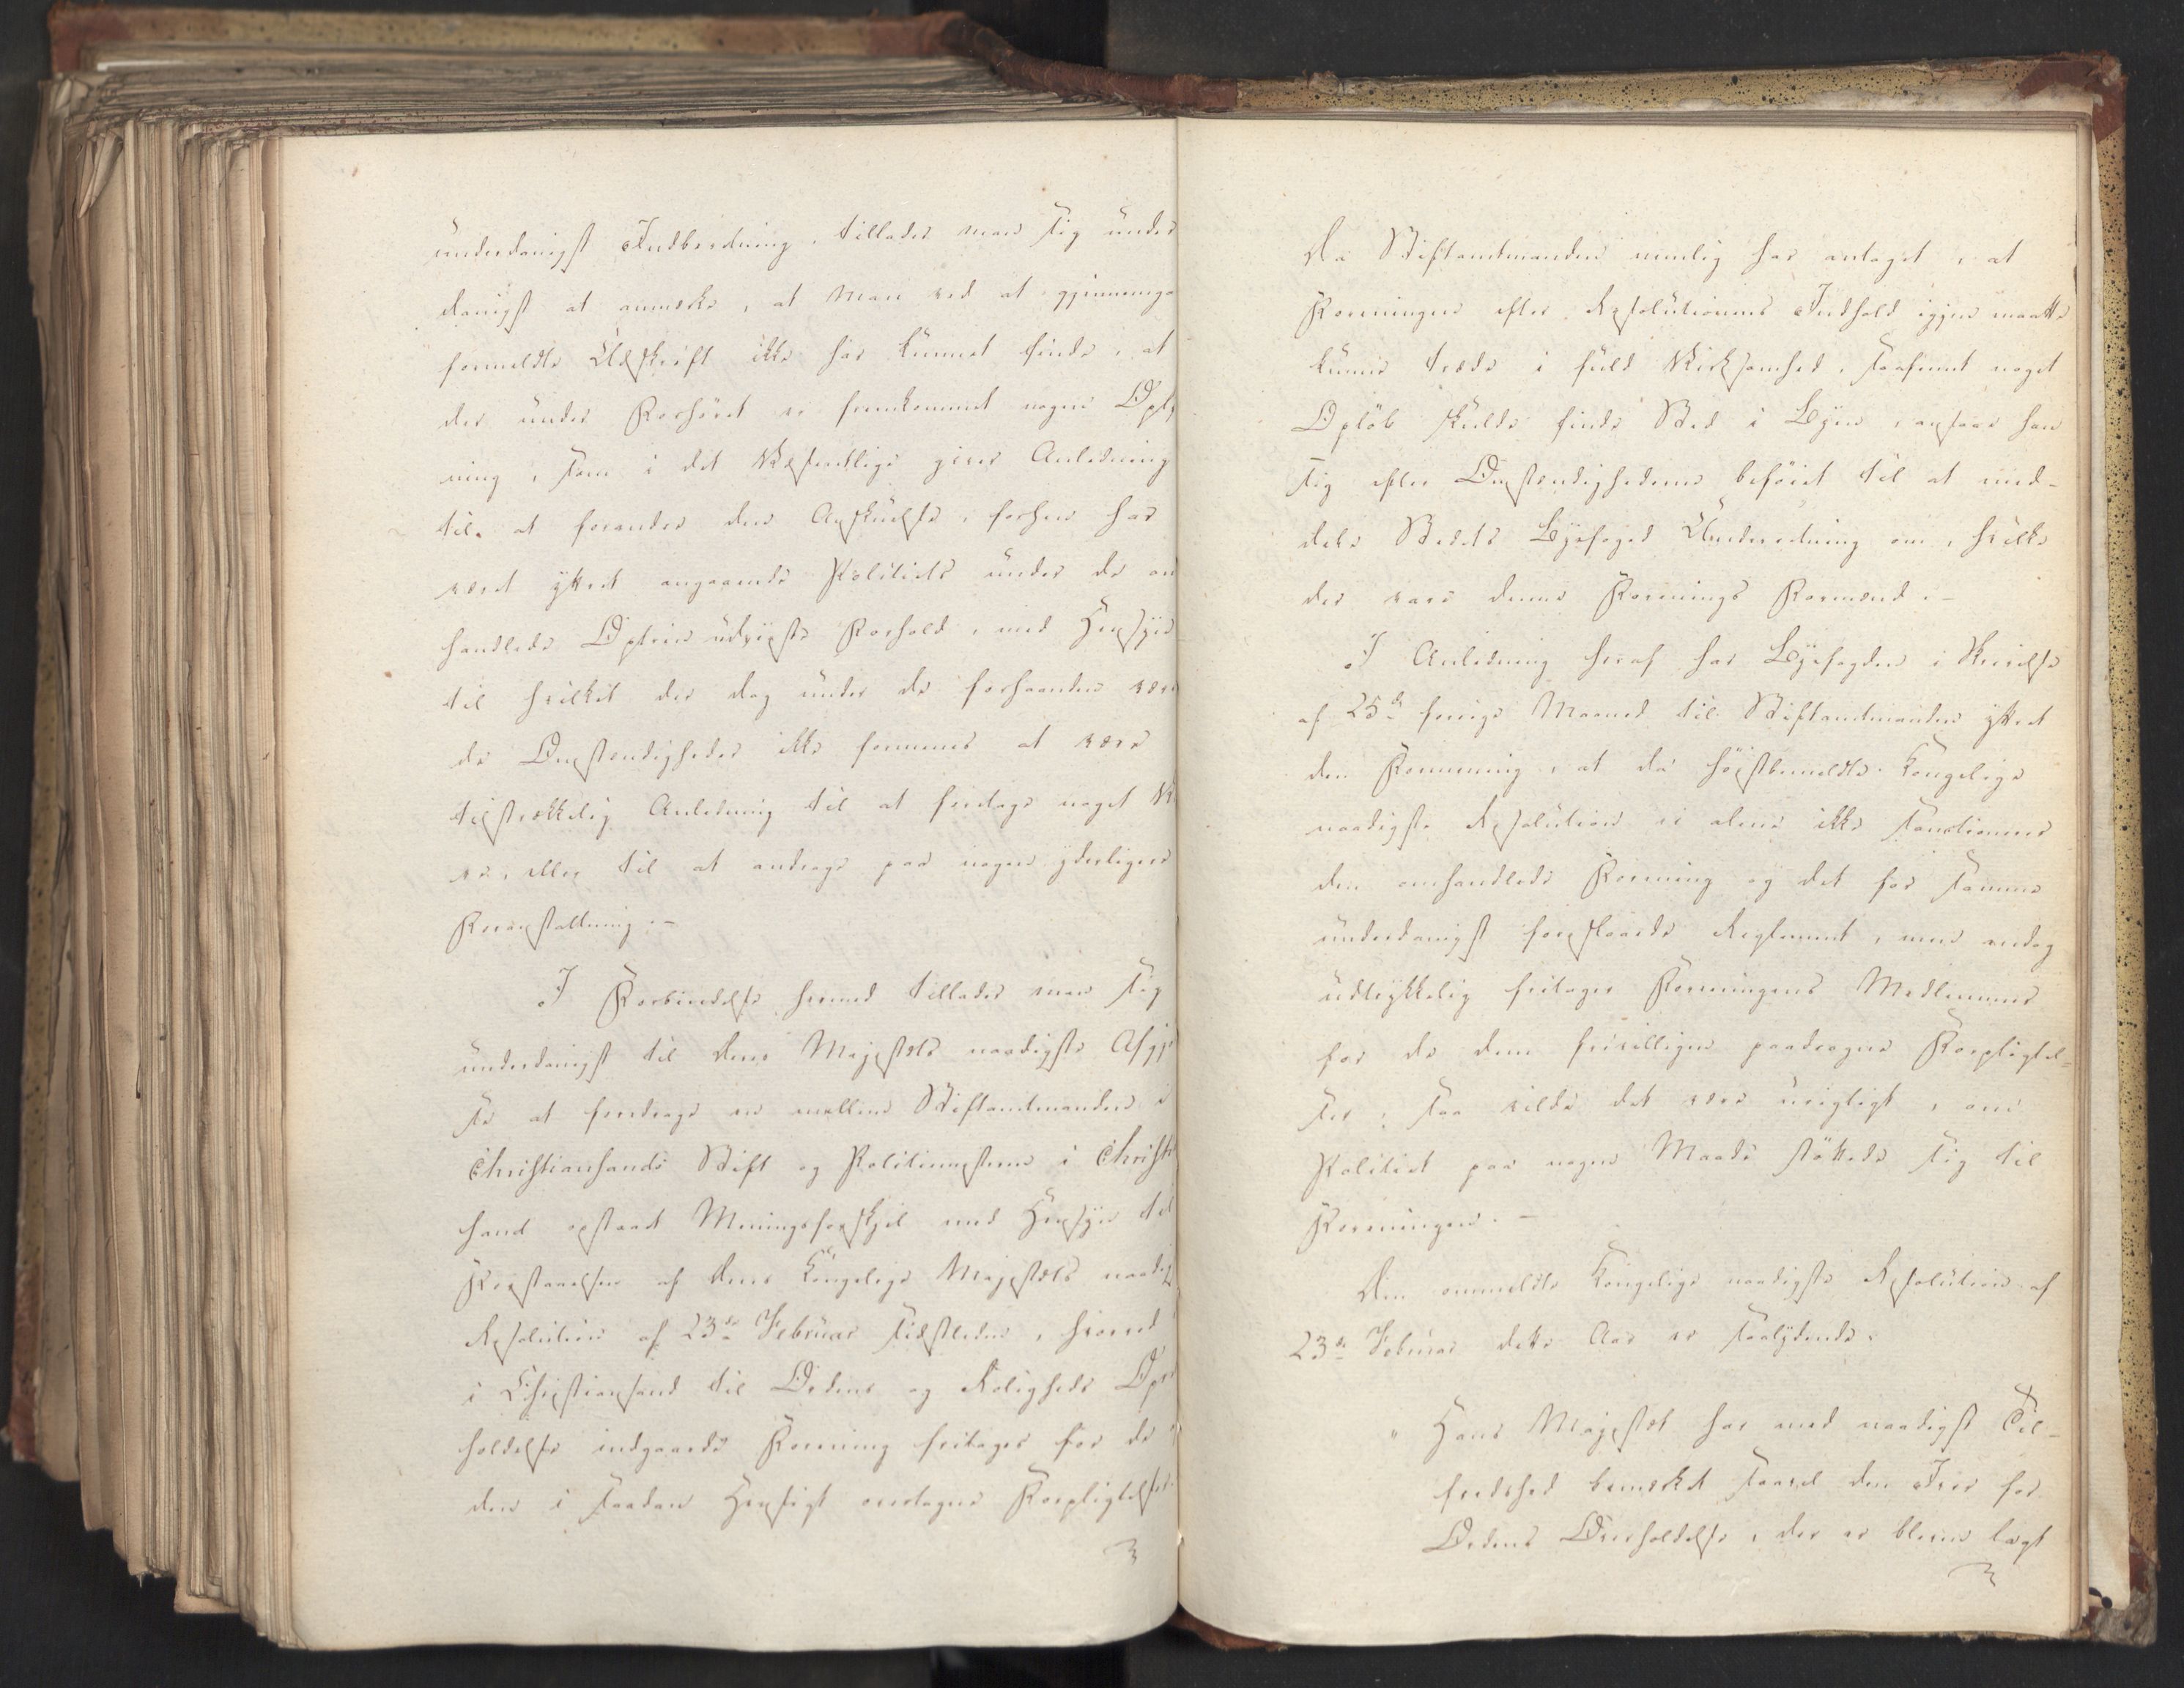 underdanigst Indberetning, tillader man sig under
danigst at anmærke, at Man ved at gjennemga
formeldte Udskrift ikke har kunnet finde, at
der under Forhöret er fremkommet nogen Oplys
ning, som i det Væsentlige giver Anledning
til at forandre den Anskuelse, forhen har
været yttret angaaende Politiets under de om
handlede Optrin udviste Forhold, med Hensyn
til hvilket der dog under de forhaanden være
de Omstændigheder ikke formenes at være
tilstrækkelig Anledning til at foretage noget Vi
re, eller til at andrage paa nogen yderligere
Foranstaltning. -
I Forbindelse hermed tillader man sig
underdanigst til Deres Majestæts naadigste Afgjö
se at foredrage en mellem Stiftamtmanden i
Christiansands Stift og Politimesteren i Christi
sand opstaaet Meningsforskjel med Hensyn til
Forstaaelsen af Deres Kongelige Majestæts naadig
Resolution af 23de Februar sidstleden, hvorved
i Christiansand til Ordens og Roligheds Opret
holdelse indgaaede Forening fritages for de
den i saadan Hensigt overtagne Forpligtelser.
Da Stiftamtmanden nemlig har antaget, at
Foreningen efter Resolutionens Indhold igjen maatte
kunne træde i fuld Virksomhed, saafremt noget
Oplöb skulde finde Sted i Byen, ansaae han
sig efter Omstændighederne beföiet til at med-
dele Stedets Byefoged Underretning om, hvilke
der vare denne Forenings Formænd. -
I Anledning heraf har Byefogden i Skrivelse
af 25de forrige Maaned til Stiftamtmanden yttret
den Formening, at da höistbemeldte Kongelige
naadigste Resolution ei alene ikke sanctionerer
den omhandlede Forening og det for samme
underdanigst foreslaaede Reglement, men endog
udtrykkelig fritager Foreningens Medlemmer
for de dem frivilligen paadragne Forpligtel-
ser, saa vilde det være urigtigt, om
Politiet paa nogen Maade stöttede sig til
Foreningen. -
Den ommeldte Kongelige naadigste Resolution af
23de Februar dette Aar er saalydende:
"Hans Majestæt har med naadigst Til-
fredshed bemærket saavel den Iver for
Ordens Overholdelse, der er bleven lagt